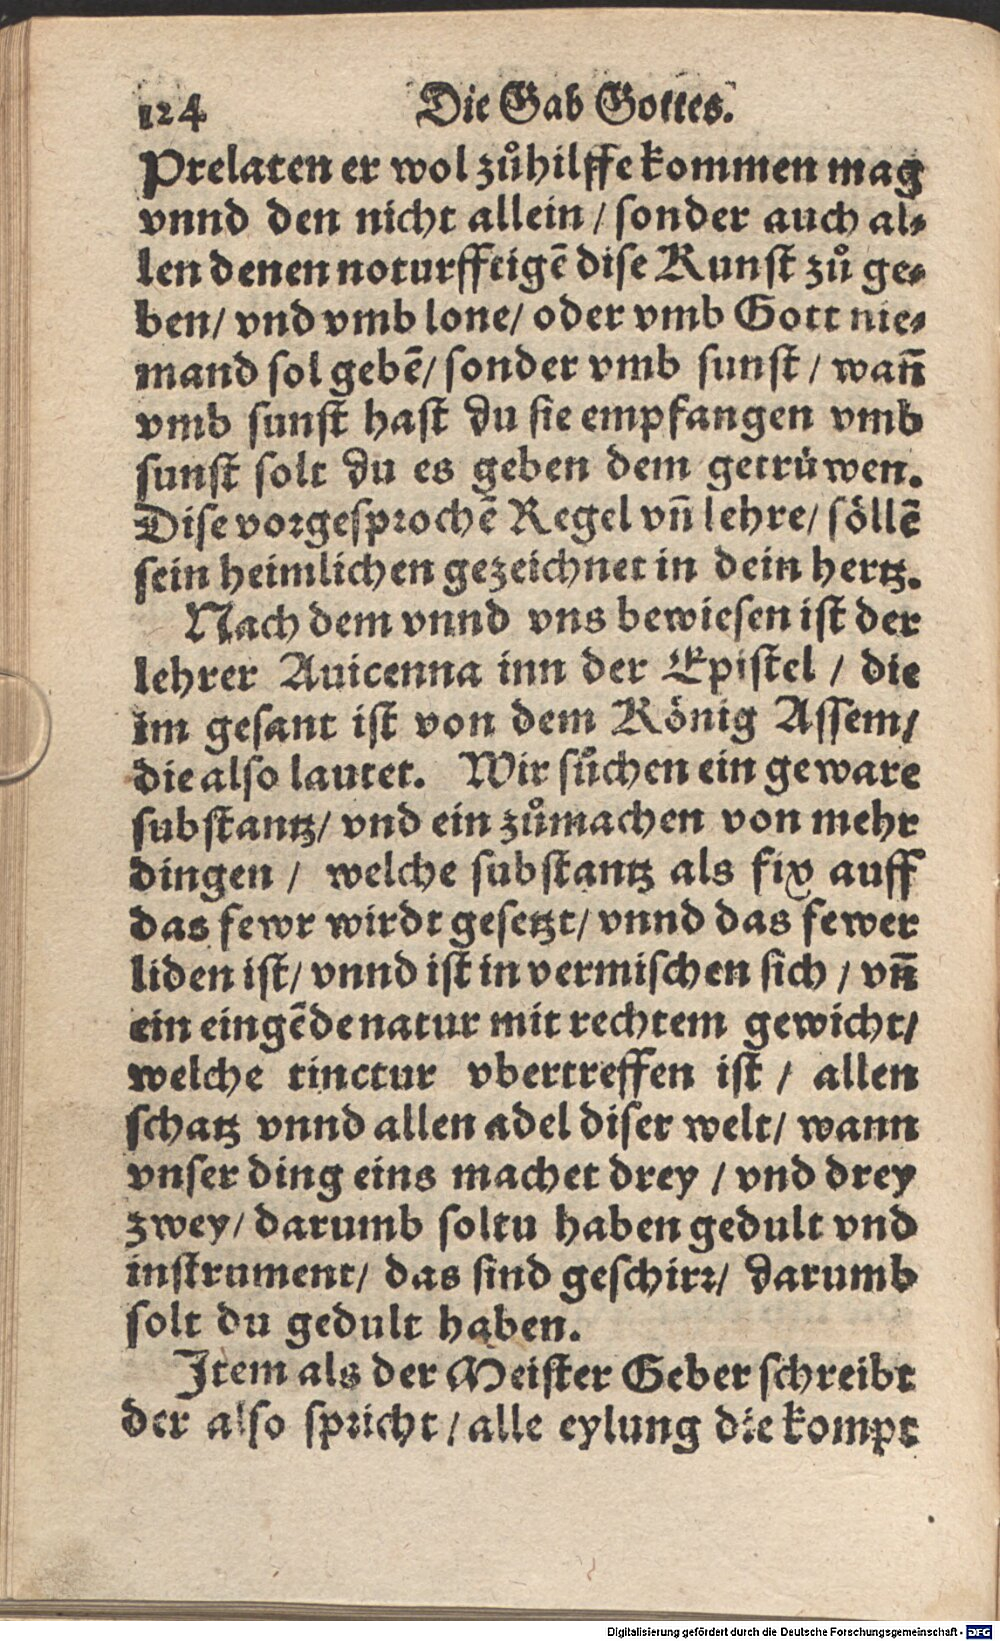 124 Die Gab Gottes.
Prelaten er wol zůhilffe kommen mag
vnnd den nicht allein / sonder auch al⸗
len denen noturfftigē dise Kunst zů ge⸗
ben / vnd vmb lone / oder vmb Gott nie⸗
mand sol gebē / sonder vmb sunst / wañ
vmb sunst hast du sie empfangen vmb
sunst solt du es geben dem getrüwen.
Dise vorgesprochē Regel vñ lehre / söllē
sein heimlichen gezeichnet in dein hertz.
Nach dem vnnd vns bewiesen ist der
lehrer Auicenna inn der Epistel / die
im gesant ist von dem König Assem /
die also lautet. Wir sůchen ein geware
substantz / vnd ein zůmachen von mehr
dingen / welche substantz als fix auff
das fewr wirdt gesetzt / vnnd das fewer
liden ist / vnnd ist in vermischen sich / vñ
ein eingēde natur mit rechtem gewicht /
welche tinctur vbertreffen ist / allen
schatz vnnd allen adel diser welt / wann
vnser ding eins machet drey / vnd drey
zwey / darumb soltu haben gedult vnd
instrument / das sind geschirr / darumb
solt du gedult haben.
Item als der Meister Geber schreibt
der also spricht / alle eylung die kompt
Digitalisierung gefördert durch die Deutsche Forschungsgemeinschaft - DFG